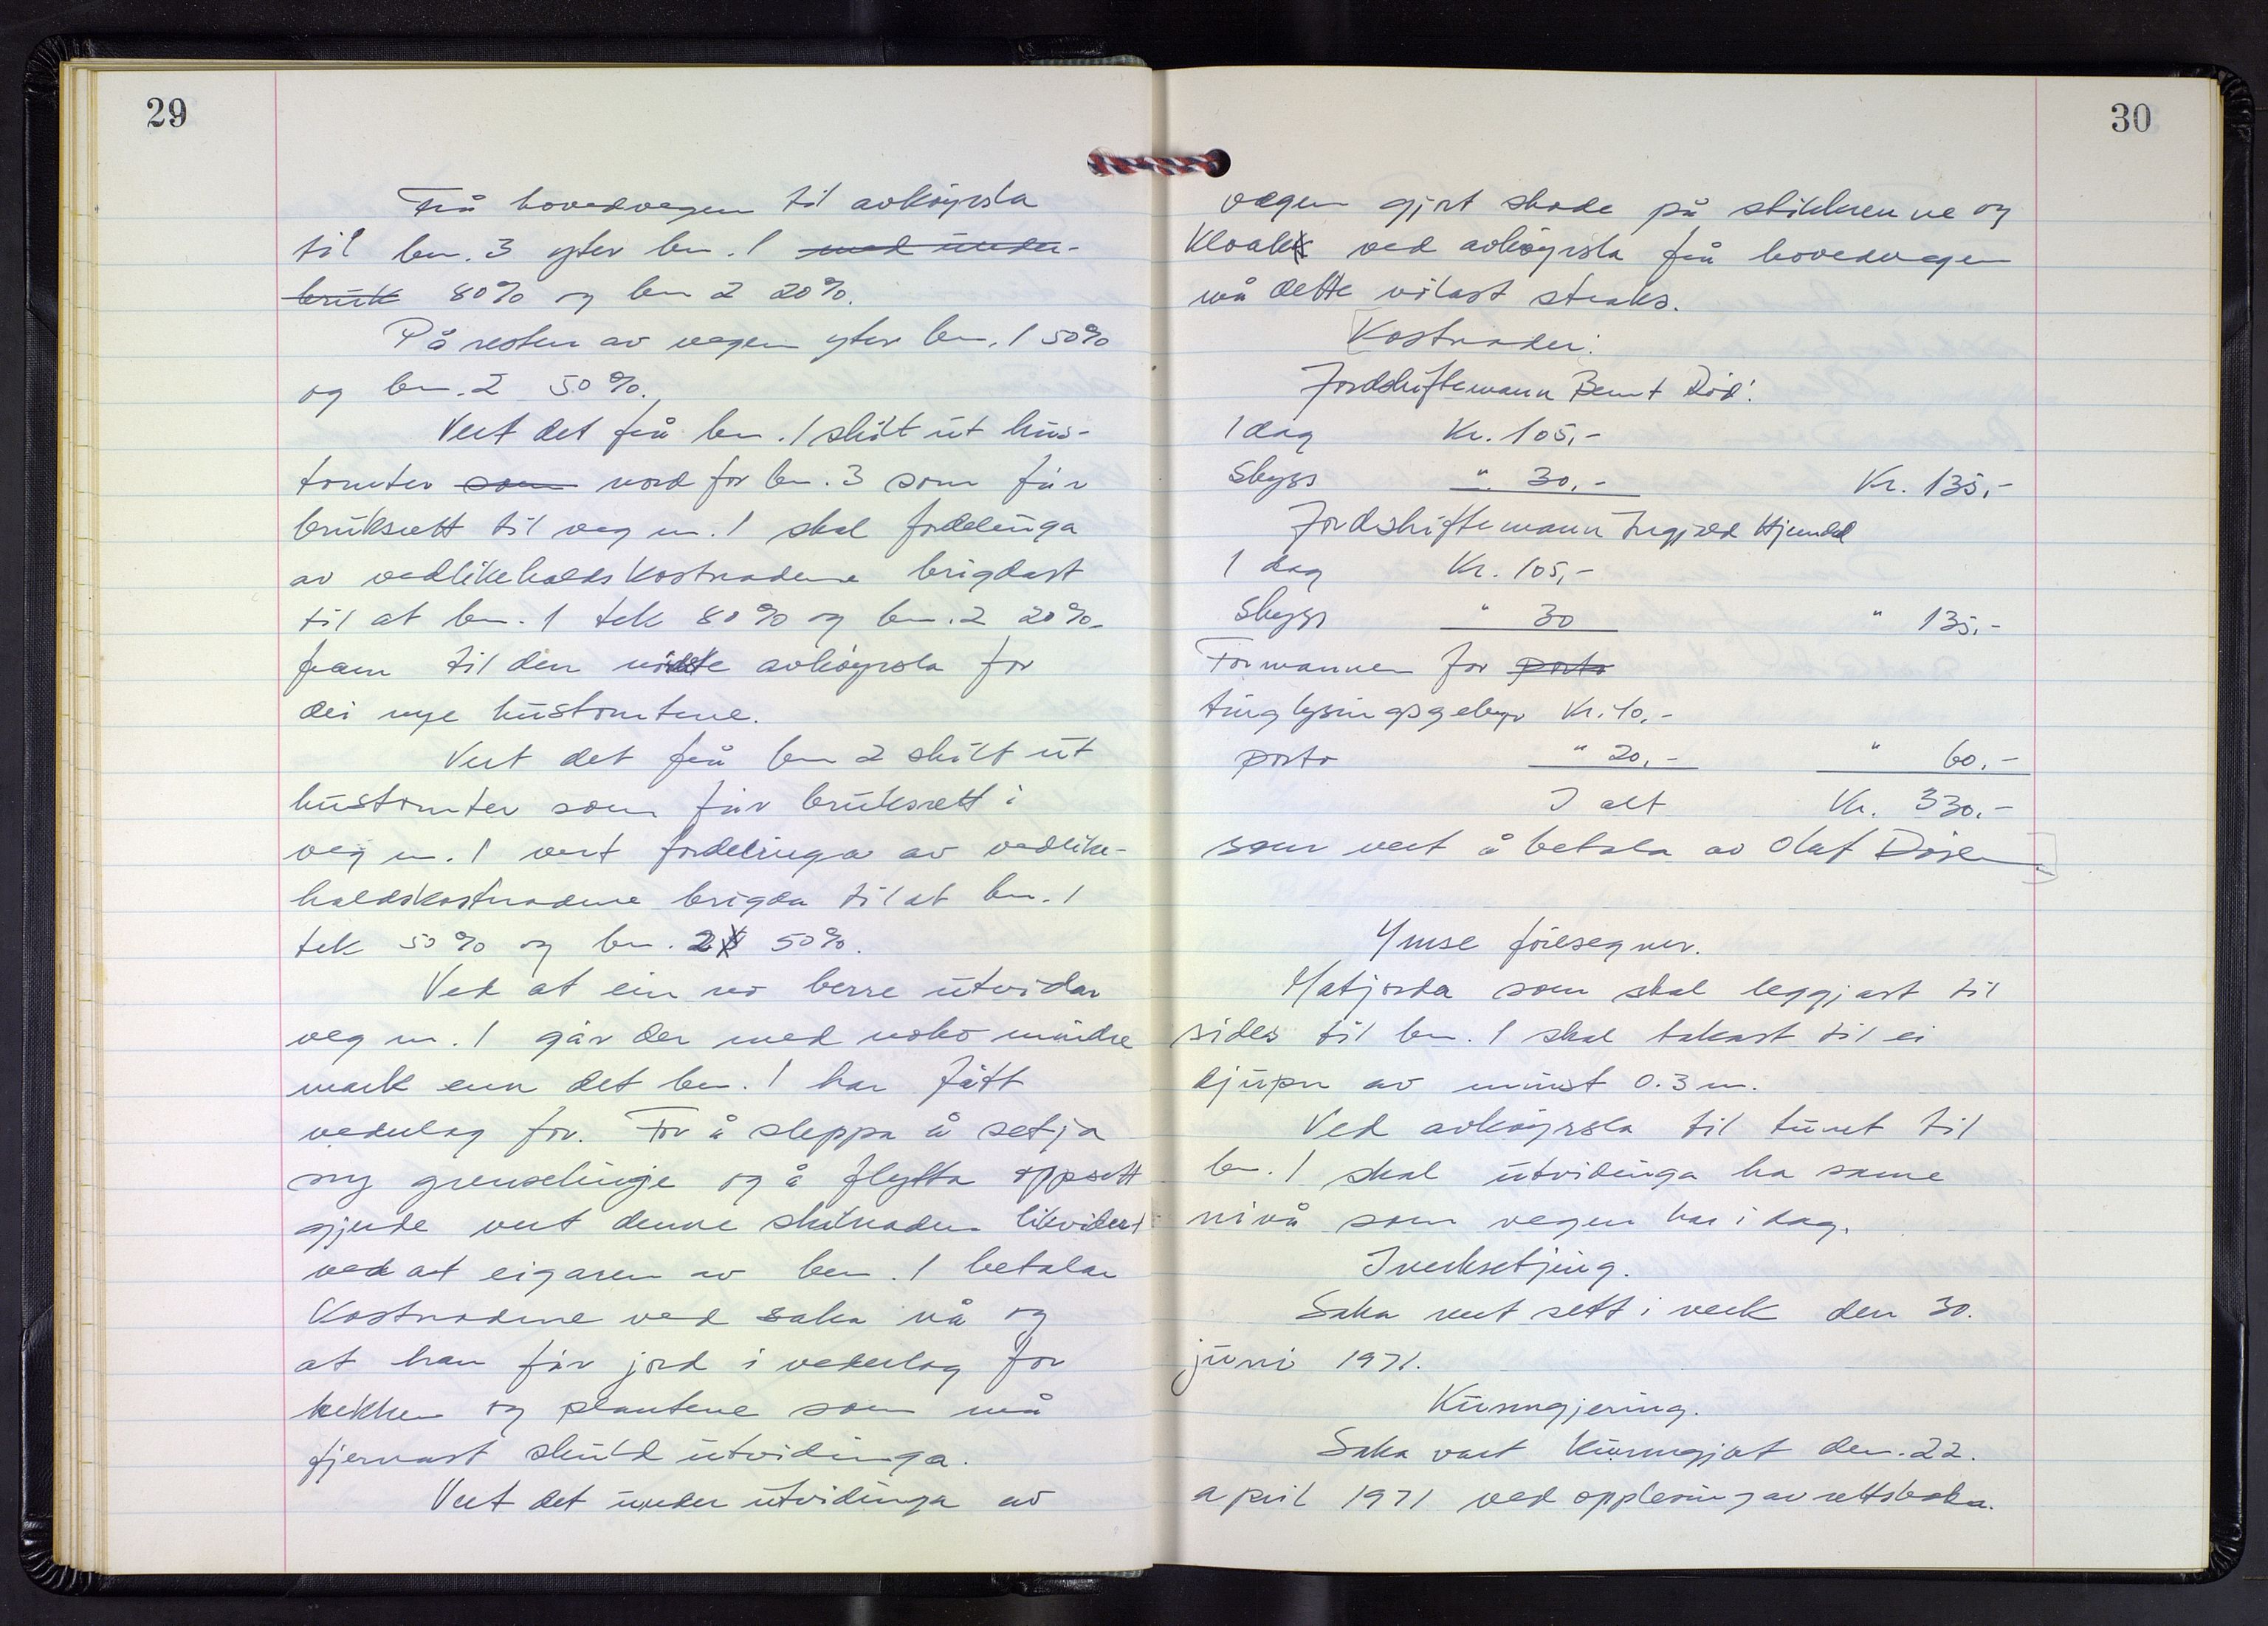 29
Frå hovedvegen til avkøyrsla
til bn. 3 yter bn. 1 med under-
bruk 80% og bn 2 20%.
På resten av vegen yter bn. 1 50%
og bn. 2 50%.
Vert det frå bn. 1 skilt ut hus-
tomter som nord for bn. 3 som får
bruksrett til veg nr. 1 skal fordelinga
av vedlikehalds kostnadene brigdast
til at bn. 1 tek 80% og bn. 2 20%
fram til den avkøyrsla for
dei nye hustomtene.
Vert det frå bn 2 skilt ut
hustomter som får bruksrett i
veg nr. 1 vert fordelinga av vedlike-
haldskostnadene brigda til at bn. 1
tek 50% og bn. 2 50%.
Ved at ein no berre utvidar
veg nr. 1 går der med noko mindre
mark enn det bn. 1 har fått
vederlag for. For å sleppa å setja
ny grenselinje og å flytta oppsett
gjerde vert denne skilnaden likvidert
ved at eigaren av bn. 1 betalar
kostnadene ved saka nå og
at han får jord i vederlag for
hekken og plantene som må
fjernast skuld utvidinga.
Vert det under utvidinga av
30
vegen gjort skade på stikkrenne og
kloakk ved avkøyrsla frå hovedvegen
må dette vølast straks.
Kostnader:
Jordskiftemann Bernt Rød:
1 dag Kr. 105,-
Skyss " 30,- Kr. 135,-
Jordskiftemann Ingjald Hjemdal
1 dag Kr. 105,-
Skyss " 30 " 135,-
Formannen for porto
tinglysingsgebyr Kr. 40,-
porto " 20,- " 60,-
I alt Kr. 330,-
som vert å betala av Olaf
Ymse føresegner.
Matjorda som skal leggjast til
sides til bn. 1 skal takast til ei
djupn av minst 0.3 m.
Ved avkøyrsla til tunet til
bn. 1 skal utvidinga ha same
nivå som vegen har i dag.
Iverksetjing.
Saka vert sett i verk den 30.
juni 1971.
Kunngjering.
Saka vart kunngjort den. 22.
april 1971 ved opplesing av rettsboka.